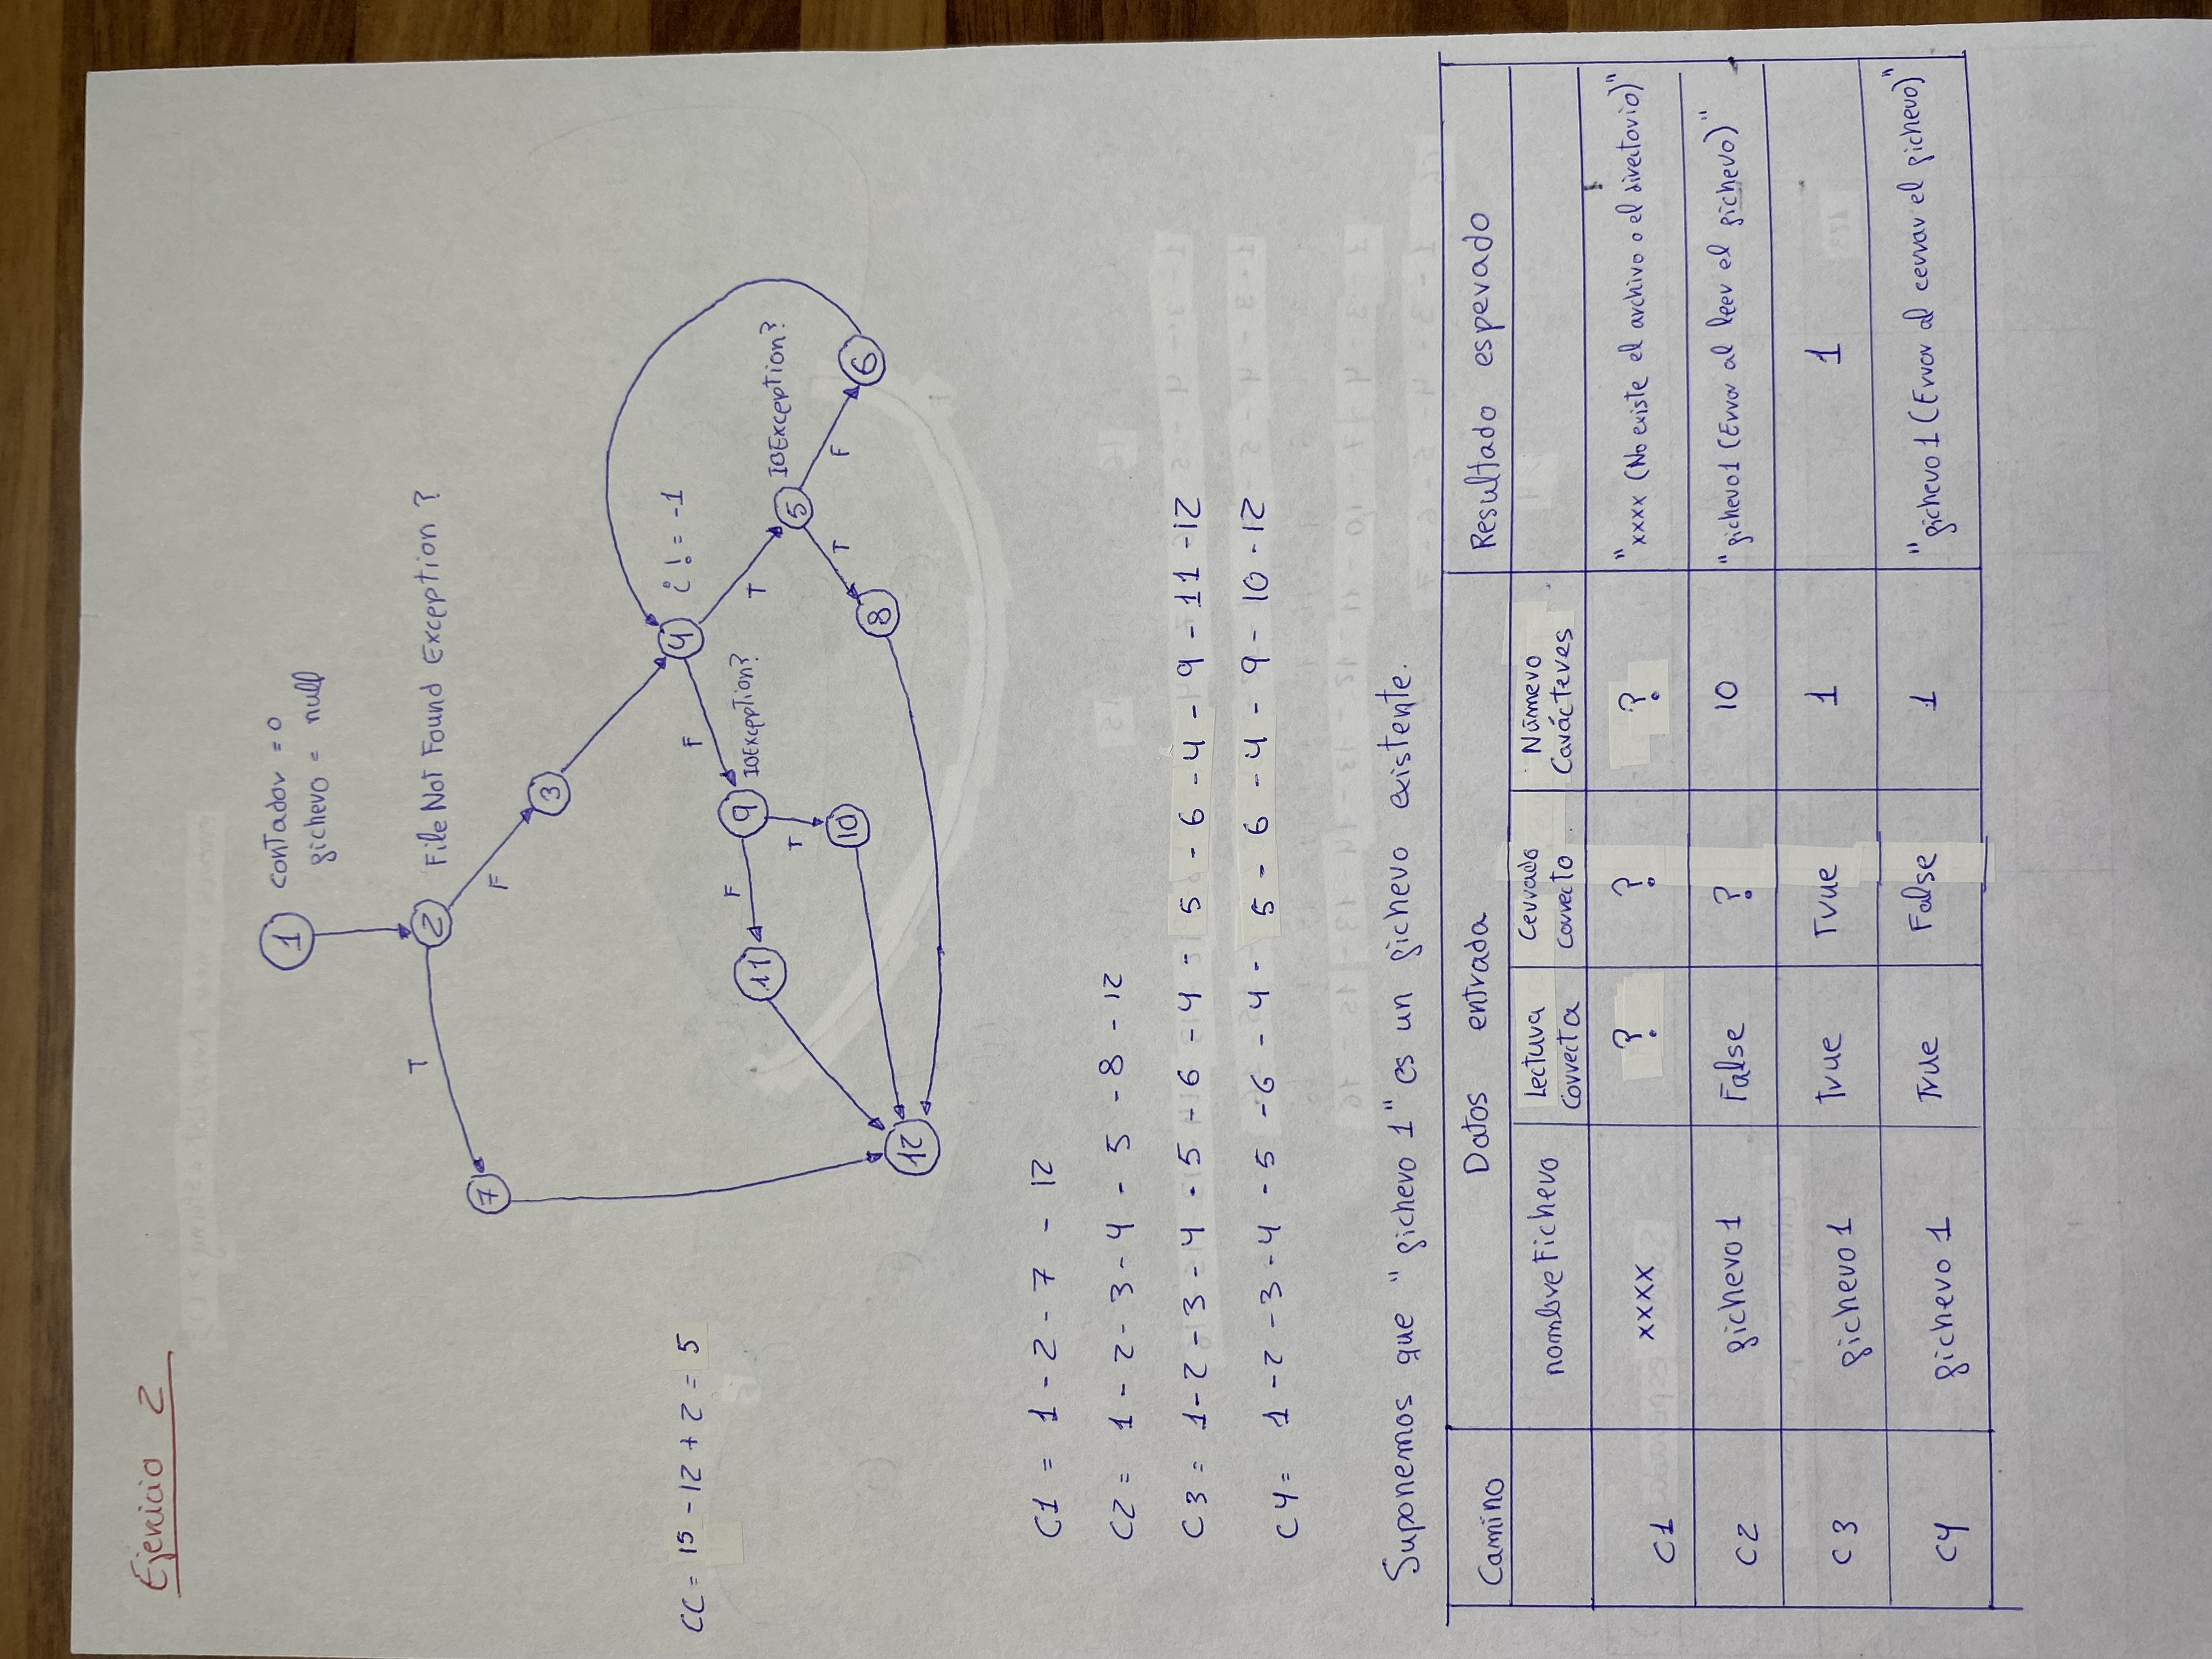 Ejercicio 2
1 contador = 0
fichero = null
T
2 File Not Found Exception ?
7
F
3
CC = 15 - 12 + 2 = 5
4 i != -1
F
11
F
9 IOException?
T
5 IOException?
T
10
T
F
8
6
12
C1 = 1 - 2 - 7 - 12
C2 = 1 - 2 - 3 - 4 - 5 - 8 - 12
C3 = 1 - 2 - 3 - 4 - 5 - 6 - 4 - 5 - 6 - 4 - 9 - 11 - 12
C4 = 1 - 2 - 3 - 4 - 5 - 6 - 4 - 5 - 6 - 4 - 9 - 10 - 12
Suponemos que "fichero 1" es un fichero existente.
Camino Datos entrada Resultado esperado
nombreFichero Lectura correcta Cerrado correcto Número Carácteres
C1 xxxx ? ? ? "xxxx (No existe el archivo o el directorio)"
C2 fichero 1 False ? 10 "fichero1 (Error al leer el fichero)"
C3 fichero 1 True True 1 1
C4 fichero 1 True False 1 "fichero 1 (Error al cerrar el fichero)"